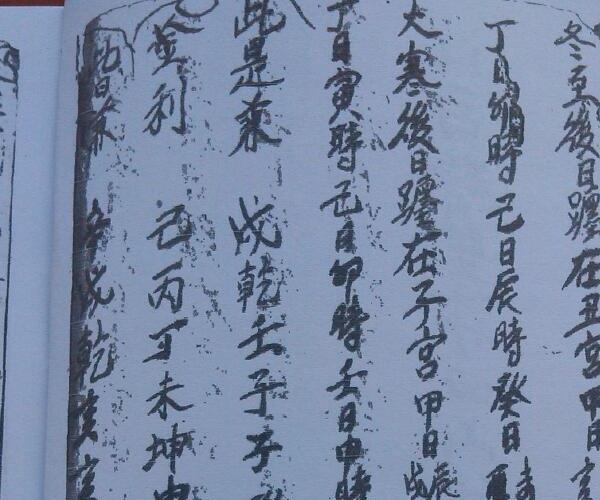 冬至後日躔在丑宮甲日
丁日卯時己日辰時癸日
大寒後日躔在子宮甲日
丁日寅時己日卯時壬日申時
此是葬 戌乾壬子子
並利 己丙丁未坤申
戌乾亥